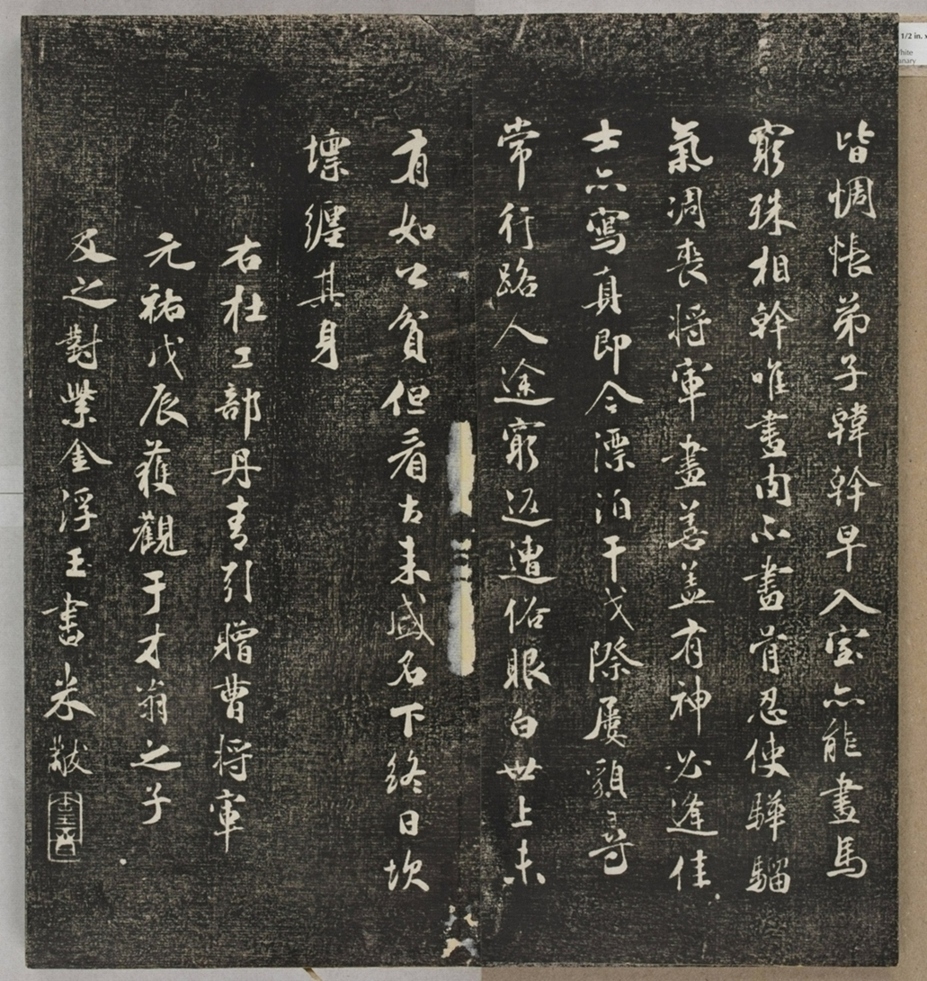 皆惆悵弟子韓幹早入室亦能畫馬
窮殊相幹唯畫肉不畫骨忍使驊騮
氣凋喪将軍畫善盖有神必逢佳
士亦寫真即今漂泊干戈際屢貌尋
常行路人途窮返遭俗眼白世上未
有如公貧但看古来盛名下終日坎
壈纏其身
右杜工部丹青引贈曹将軍
元祐戊辰獲觀于才翁之子
及之對紫金浮玉書米黻
1/2 in.